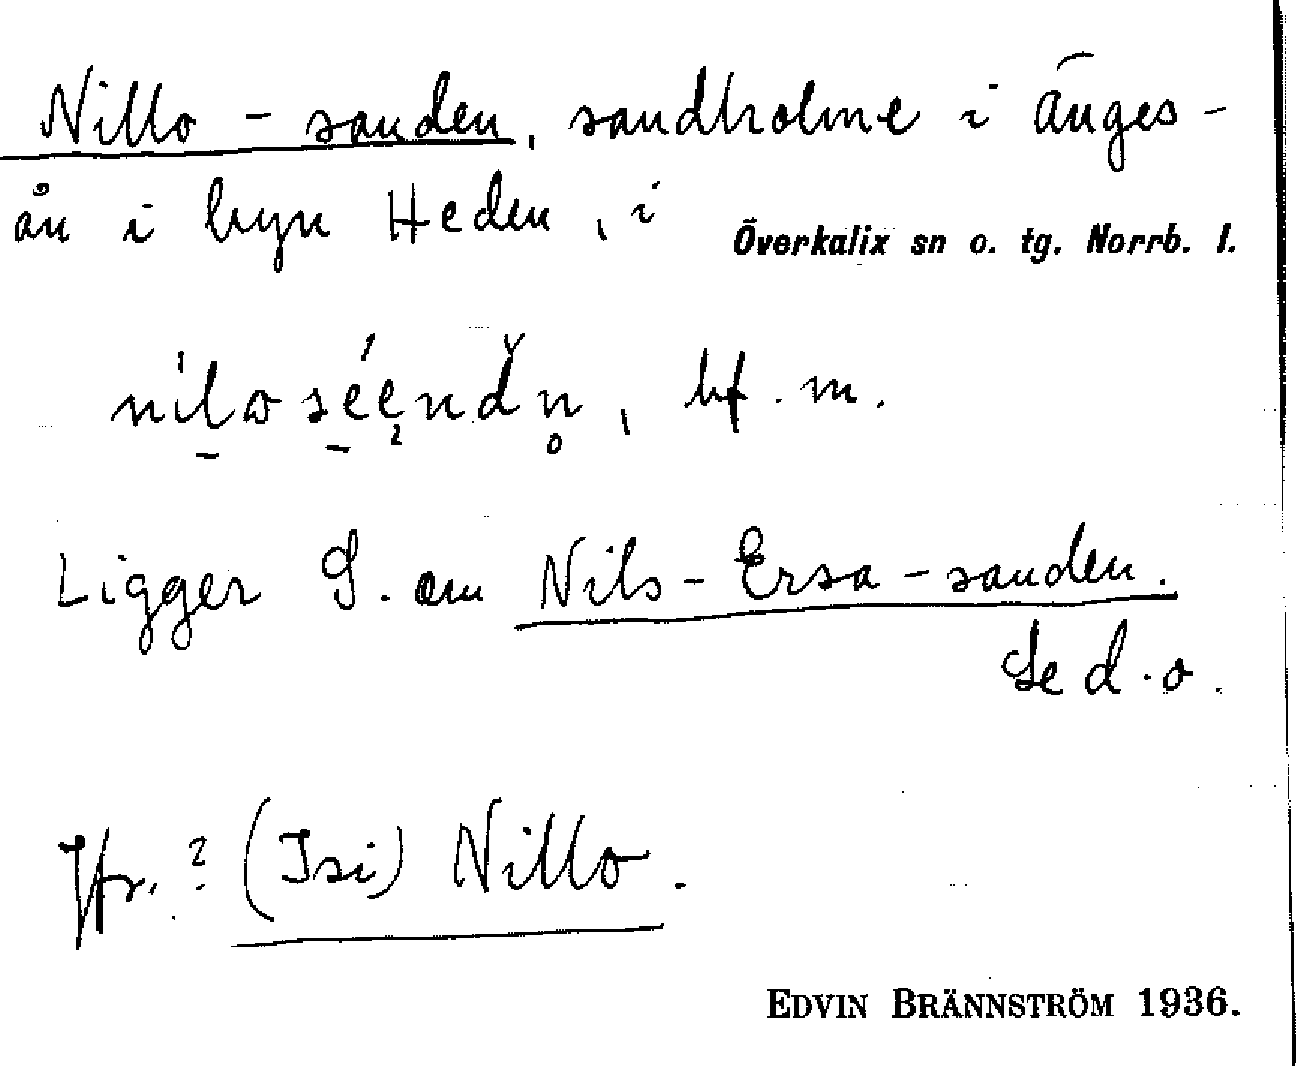 Nillo - sanden, sandholme i Änges-
ån i byn Heden, i Överkalix sn o. tg. Norrb. l.
niloséendn, bf. m.
Ligger S. om Nils-Ersa-sanden.
Se d.o.
Jfr. ? (Isi) Nillo.
EDVIN BRÄNNSTRÖM 1936.